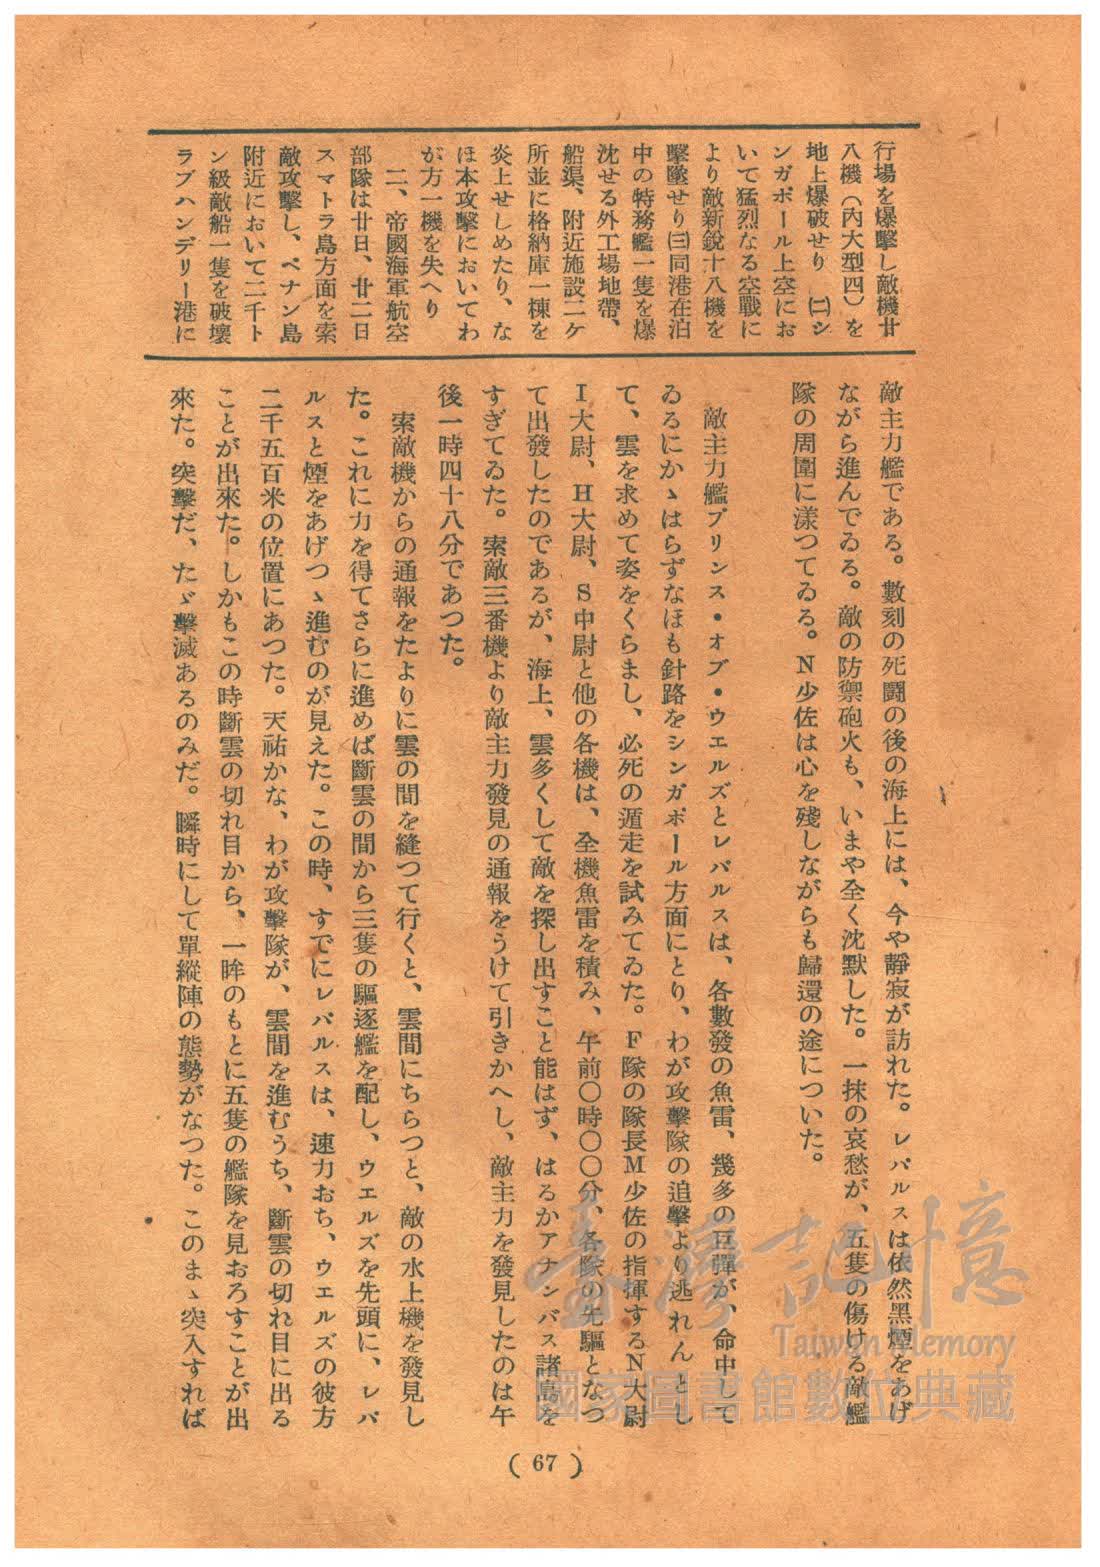 行場を爆擊し敵機廿
八機（內大型四）を
地上爆破せり　㈡シ
ンガポール上空にお
いて猛烈なる空戰に
より敵新銳十八機を
擊墜せり㈢同港在泊
中の特務艦一隻を爆
沈せる外工場地帶、
船渠、附近施設二ケ
所並に格納庫一棟を
炎上せしめたり、な
ほ本攻擊においてわ
が方一機を失へり
二、帝國海軍航空
部隊は廿日、廿二日
スマトラ島方面を索
敵攻擊し、ペナン島
附近において二千ト
ン級敵船一隻を破壞
ラブハンデリー港に
敵主力艦である。數刻の死鬪の後の海上には、今や靜寂が訪れた。レパルスは依然黑煙をあげ
ながら進んでゐる。敵の防禦砲火も、いまや全く沈默した。一抹の哀愁が、五隻の傷ける敵艦
隊の周圍に漾つてゐる。N少佐は心を殘しながらも歸還の途についた。
敵主力艦プリンス・オブ・ウエルズとレパルスは、各數發の魚雷、幾多の巨彈が、命中して
ゐるにかゝはらずなほも針路をシンガポール方面にとり、わが攻擊隊の追擊より逃れんとし
て、雲を求めて姿をくらまし、必死の遁走を試みてゐた。F隊の隊長M少佐の指揮するN大尉
I大尉、H大尉、S中尉と他の各機は、全機魚雷を積み、午前〇時〇〇分、各隊の先驅となつ
て出發したのであるが、海上、雲多くして敵を探し出すこと能はず、はるかアナンバス諸島を
すぎてゐた。索敵三番機より敵主力發見の通報をうけて引きかへし、敵主力を發見したのは午
後一時四十八分であつた。
索敵機からの通報をたよりに雲の間を縫つて行くと、雲間にちらつと、敵の水上機を發見し
た。これに力を得てさらに進めば斷雲の間から三隻の驅逐艦を配し、ウエルズを先頭に、レパ
ルスと煙をあげつゝ進むのが見えた。この時、すでにレパルスは、速力おち、ウエルズの彼方
二千五百米の位置にあつた。天祐かな、わが攻擊隊が、雲間を進むうち、斷雲の切れ目に出る
ことが出來た。しかもこの時斷雲の切れ目から、一眸のもとに五隻の艦隊を見おろすことが出
來た。突擊だ、たゞ擊滅あるのみだ。瞬時にして單縱陣の態勢がなつた。このまゝ突入すれば
(67)
臺灣記憶
Taiwan Memory
國家圖書館數位典藏